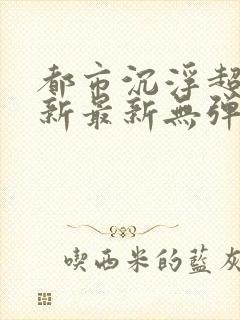 都市沉浮超
新最新無彈
喫西米的藍灰